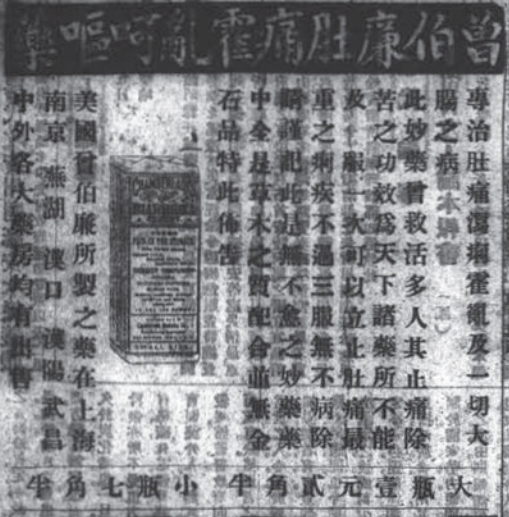 曾伯廉肚痛霍亂呵嘔藥
專治肚痛瀉痢霍亂及一切大
腸之病
此妙藥曾救活多人其止痛除
苦之功效爲天下諸藥所不能
及 服一次可以立止肚痛最
重之痢疾不過三服無不病除
請謹記此是無不愈之妙藥藥
中全是草木之質配合並無金
石品特此佈告
CHAMBERLAIN'S
美國曾伯廉所製之藥在上海
南京 蕪湖 漢口 漢陽武昌
中外各大藥房均有出售
大瓶壹元貳角半 小瓶七角半